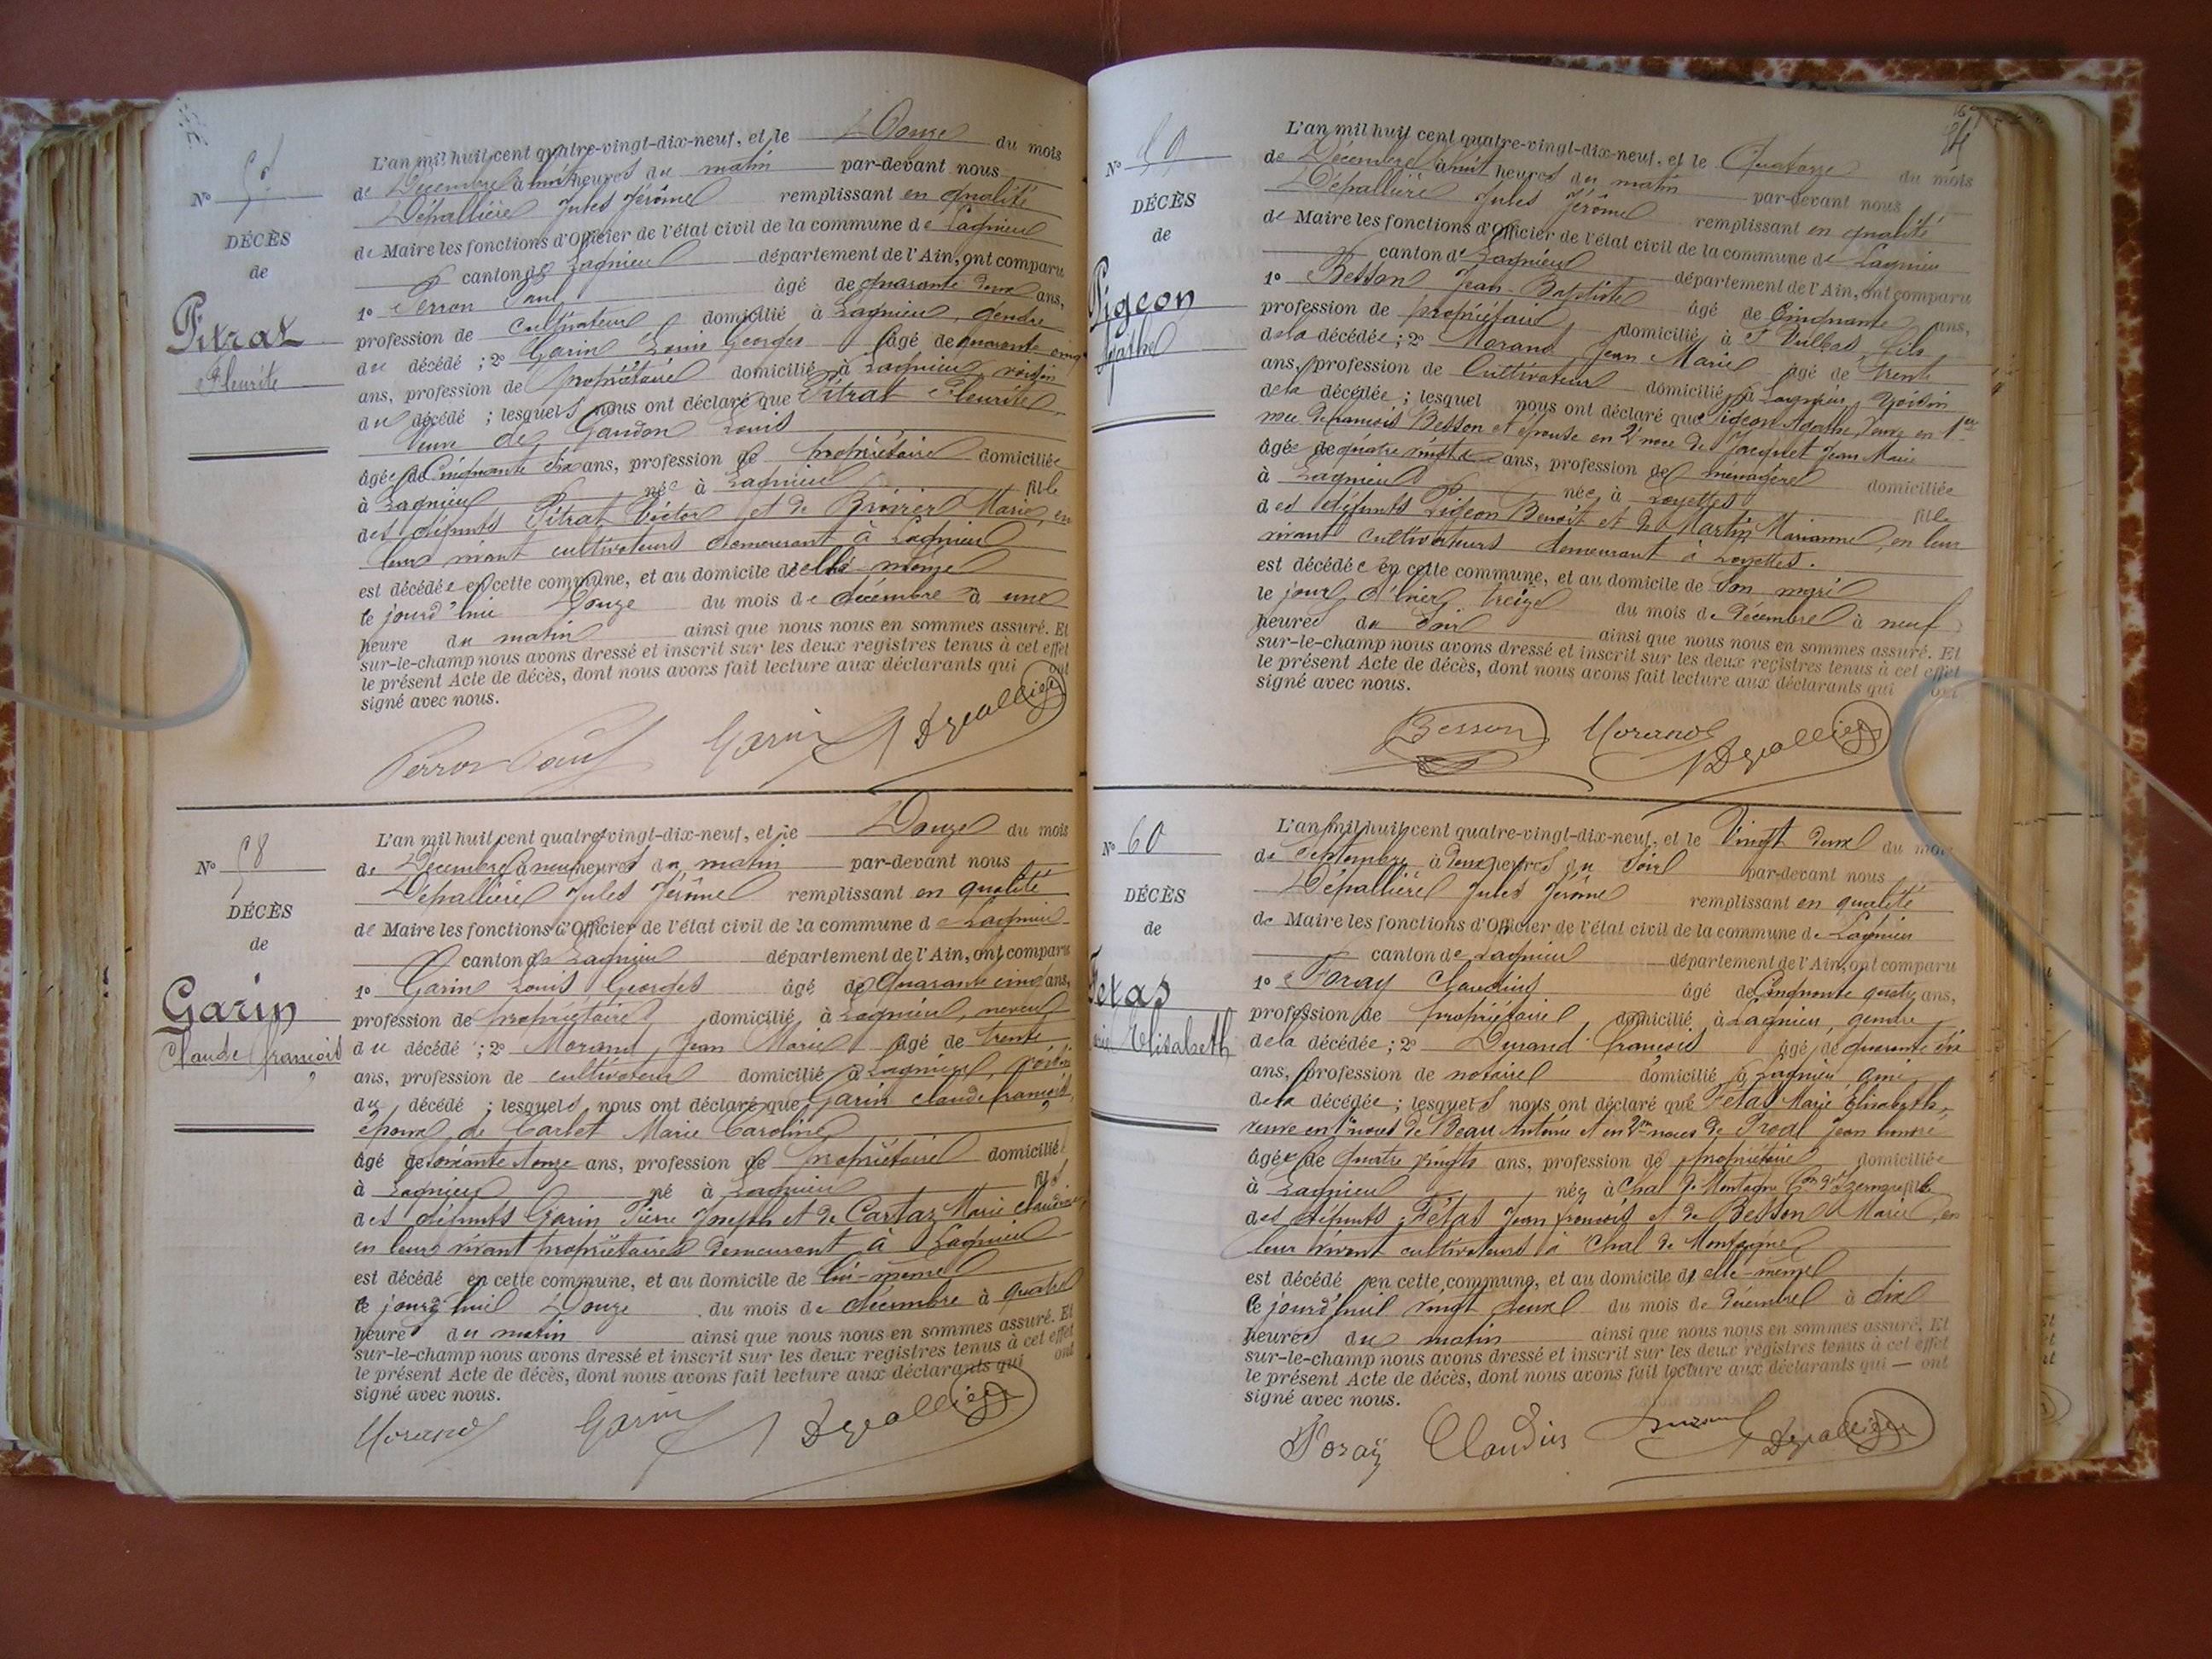 N°
DÉCÈS
de
Pitrat
Fleurite
L'an mil huit cent quatre-vingt-dix-neuf, et le Douze du mois
de Décembre à huit heures du matin par-devant nous
Dépallière Jules Jérôme remplissant en qualité
de Maire les fonctions d'Officier de l'état civil de la commune de Lagnieu
canton de Lagnieu département de l'Ain, ont comparu
1° Perron Paul âgé de quarante deux ans,
profession de cultivateur domicilié à Lagnieu, gendre
du décédé ; 2° Garin Louis Georges âgé de quarante cinq
ans, profession de propriétaire domicilié à Lagnieu, voisin
du décédé ; lesquels nous ont déclaré que Pitrat Fleurite,
Veuve de Gaudon Louis
âgée de Cinquante dix ans, profession de propriétaire domiciliée
à Lagnieu née à Lagnieu fille
des défunts Pitrat Victor et de Marie, en
leur vivant cultivateurs demeurant à Lagnieu
est décédée en cette commune, et au domicile de elle-même
le jourd'hui Douze du mois de décembre à une
heure du matin ainsi que nous nous en sommes assuré. Et
sur-le-champ nous avons dressé et inscrit sur les deux registres tenus à cet effet
le présent Acte de décès, dont nous avons fait lecture aux déclarants qui ont
signé avec nous.
Perron Paul Garin Depallière
N° 58
DÉCÈS
de
Garin
Claude françois
L'an mil huit cent quatre-vingt-dix-neuf, et le Douze du mois
de Décembre à neuf heures du matin par-devant nous
Dépallière Jules Jérôme remplissant en qualité
de Maire les fonctions d'Officier de l'état civil de la commune de Lagnieu
canton de Lagnieu département de l'Ain, ont comparu
1° Garin Louis Georges âgé de quarante cinq ans,
profession de propriétaire domicilié à Lagnieu, neveu
du décédé ; 2° Morand Jean Marie âgé de trente
ans, profession de cultivateur domicilié à Lagnieu, voisin
du décédé ; lesquels nous ont déclaré que Garin claude françois,
époux de Carlet Marie Caroline
âgé de soixante et onze ans, profession de propriétaire domicilié
à Lagnieu né à Lagnieu fils
des défunts Garin Pierre Joseph et de Cartaz Marie
en leur vivant propriétaires demeurant à Lagnieu
est décédé en cette commune, et au domicile de lui-même
le jourd'hui Douze du mois de décembre à quatre
heure du matin ainsi que nous nous en sommes assuré. Et
sur-le-champ nous avons dressé et inscrit sur les deux registres tenus à cet effet
le présent Acte de décès, dont nous avons fait lecture aux déclarants qui ont
signé avec nous.
Morand Garin Depallière
N° 59
DÉCÈS
de
Pigeon
Agathe
L'an mil huit cent quatre-vingt-dix-neuf, et le Quatorze du mois
de Décembre à huit heures du matin par-devant nous
Dépallière Jules Jérôme remplissant en qualité
de Maire les fonctions d'Officier de l'état civil de la commune de Lagnieu
canton de Lagnieu département de l'Ain, ont comparu
1° Besson Jean-Baptiste âgé de Cinquante ans,
profession de propriétaire domicilié à St Vulbas, fils
de la décédée ; 2° Morand Jean Marie âgé de trente
ans, profession de Cultivateur domicilié à Lagnieu, voisin
de la décédée ; lesquel nous ont déclaré que Pigeon Agathe, Veuve en 1ère
noce de francois Besson et épouse en 2ème noce de Jacquet Jean Marie
âgée de quatre vingts ans, profession de ménagère domiciliée
à Lagnieu née à Loyettes fille
des défunts Pigeon Benoît et de Martin Marianne, en leur
vivant cultivateurs demeurant à Loyettes.
est décédée en cette commune, et au domicile de son mari
le jour d'hier treize du mois de Décembre à neuf
heures du soir ainsi que nous nous en sommes assuré. Et
sur-le-champ nous avons dressé et inscrit sur les deux registres tenus à cet effet
le présent Acte de décès, dont nous avons fait lecture aux déclarants qui ont
signé avec nous.
Besson Morand Depallière
N° 60
DÉCÈS
de
Fetas
Elisabeth
L'an mil huit cent quatre-vingt-dix-neuf, et le Vingt deux du mois
de à deux heures du Soir par-devant nous
Dépallière Jules Jérome remplissant en qualité
de Maire les fonctions d'Officier de l'état civil de la commune de Lagnieu
canton de Lagnieu département de l'Ain, ont comparu
1° Foray Claudius âgé de Cinquante quatre ans,
profession de propriétaire domicilié à Lagnieu, gendre
de la décédée ; 2° Durand françois âgé de quarante dix
ans, profession de notaire domicilié à Lagnieu ami
de la décédée ; lesquels nous ont déclaré que Fétas Marie Elisabeth,
veuve en 1ères noces de Beau Antoine et en 2mes noces de Jean
âgée de quatre vingts ans, profession de propriétaire domiciliée
à Lagnieu née à Chal de Montagne fille
des défunts Fétas Jean françois et de Besson Marie, en
leur vivant cultivateurs à Chal de Montagne
est décédé en cette commune, et au domicile de elle-même
le jourd'hui vingt deux du mois de Décembre à dix
heures du matin ainsi que nous nous en sommes assuré. Et
sur-le-champ nous avons dressé et inscrit sur les deux registres tenus à cet effet
le présent Acte de décès, dont nous avons fait lecture aux déclarants qui — ont
signé avec nous.
Foray Claudius Durand Depallière